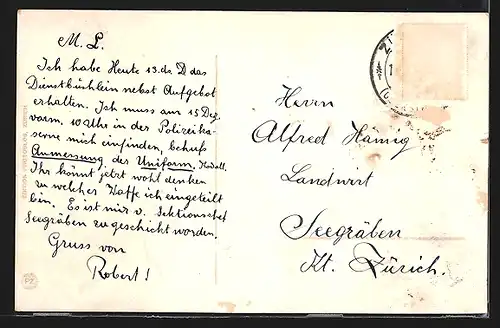 M. L.
Ich habe Heute 13. ds. D das
Dienstbüchlein nebst Aufgebot
erhalten. Ich muss am 15 Dez.
vorm. 10 Uhr in der Polizeika-
serne mich einfinden, behufs
Anmessung der Uniform,
Ihr könnt jetzt wohl denken
zu welcher Waffe ich eingeteilt
bin. Es ist mir v. Sektionschef
Seegräben zugeschickt worden.
Gruss von
Robert!
Herrn
Alfred Hämig
Landwirt
Seegräben
Kt. Zürich.